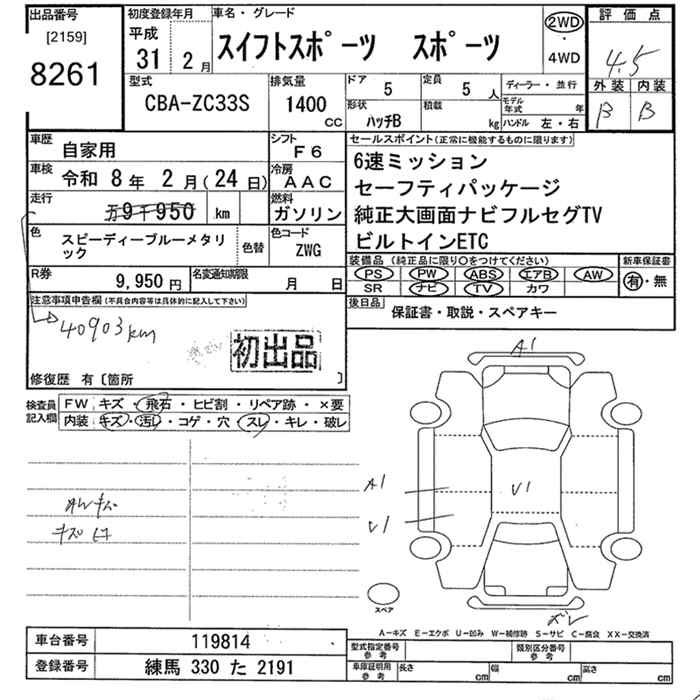 出品番号 初度登録年月 車名・グレード 評価点
[2159] 平成 2WD
8261 31 2月 スイフトスポーツ スポーツ ・ 4.5
4WD
型式 排気量 ドア 5 定員 5人 ディーラー・並行 外装 内装
CBA-ZC33S 1400cc 形状 ハッチB 積載 kg モデル年式 年 B B
ハンドル 左・右
車歴 自家用 シフト F6 セールスポイント(正常に機能するものに限ります)
車検 令和 8年 2月(24日) 冷房 AAC 6速ミッション
走行 万9千950 km 燃料 ガソリン セーフティパッケージ
色 スピーディーブルーメタリック 色替 色コード ZWG 純正大画面ナビフルセグTV
ビルトインETC
R券 9,950円 名変通知期限 月 日 装備品(純正品に限り○をつけてください) 新車保証書
PS PW ABS エアB AW 有・無
SR ナビ TV カワ
注意事項申告欄(不具合内容等は具体的に記入して下さい) 後日品 保証書・取説・スペアキー
40903km
初出品
修復歴 有〔箇所 〕
検査員記入欄 FW キズ・飛石・ヒビ割・リペア跡・×要
内装 キズ・汚レ・コゲ・穴・スレ・キレ・破レ
A1
A1 U1
U1
キズ
スペア
A-キズ E-エクボ U-凹み W-補修跡 S-サビ C-腐食 XX-交換済
車台番号 119814 型式指定番号 参考 類別区分番号 参考
登録番号 練馬 330 た 2191 車庫証明用 参考 長さ cm 幅 cm 高さ cm